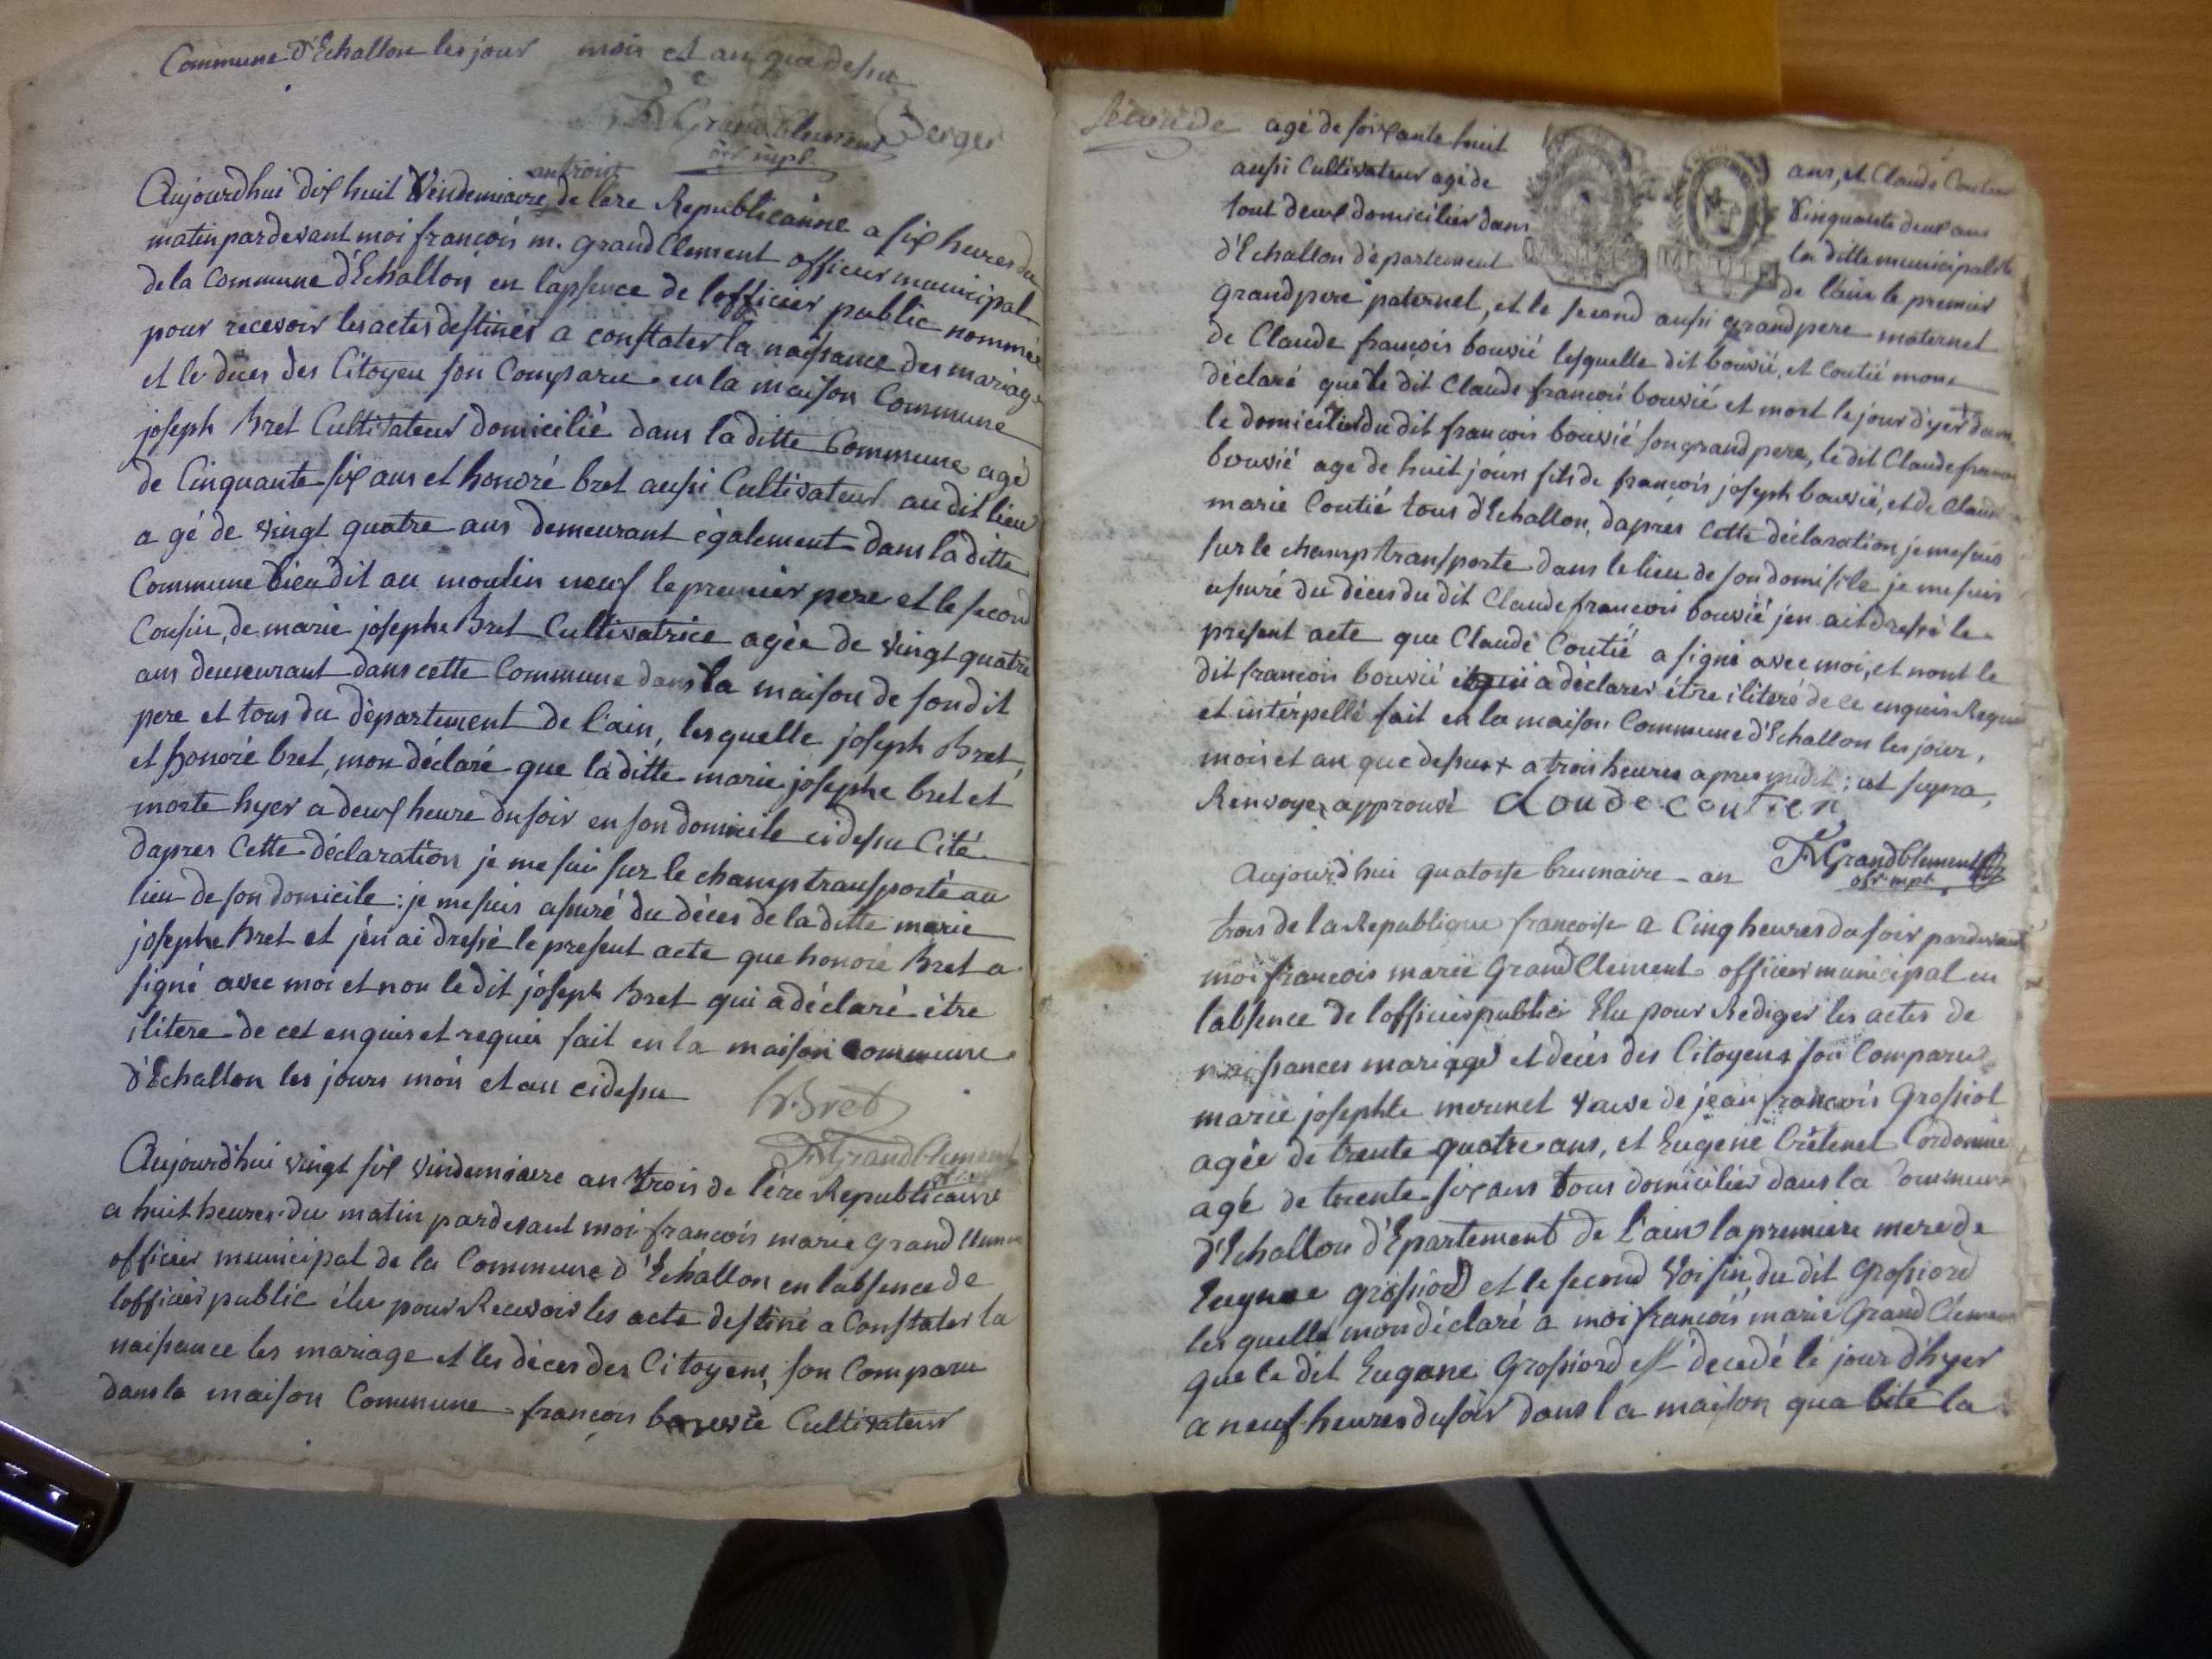 Commune d'Echallon les jour mois et an que desu
fr Grandclement Berger
ofr mpl.
antrois
Aujourdhui dix huit Vendemiaire de lere Republicainne a six heures du
matin pardevant moi francois m. grandClement officier municipal
de la Commune d'Echallon en lapsence de lofficier public nommée
pour recevoir les actes destinés a constater la naissance des mariage
et le déces des Citoyen son Comparu en la maison Commune
joseph Bret Cultivateur domicilié dans laditte Commune agé
de Cinquante six ans et honoré bret aussi Cultivateur audit lieu
agé de vingt quatre ans demeurant également dans laditte
Commune lieudit au moulin neuf le premier pere et le second
Cousin, de marie josephe Bret Cultivatrice agée de vingt quatre
ans demeurant dans cette Commune dans la maison de sondit
pere et tous du département de l'ain, lesquelle joseph Bret,
et honoré bret, mon déclaré que laditte marie josephe bret et
morte hyer a deux heure dusoir en son domicile cidesu Cité
dapres Cette déclaration je me suis sur le champ transporté au
lieu de son domicile : je me suis assuré du déces de laditte marie
josephe Bret et j'en ai dressé le present acte que honoré Bret a
signé avec moi et non ledit joseph Bret qui a déclaré étre
ilitere de cet enquis et requis fait en la maison commune
d'Echallon les jours mois et an cidesu
h. Bret
fr Grandclement
Aujourd'hui vingt six vindemiaire an trois de l'ére Republicaine
a huit heures du matin pardevant moi francois marie grand
officier municipal de la Commune d'Echallon en labsence de
lofficier public élu pour Recevoir les acte destiné a Constater la
naissance les mariage et les déces des Citoyens, son Comparu
dans la maison Commune francois bouvié Cultivateur
agé de soixante huit ans, et Claude Coutier
aussi Cultivateur agé de Cinquante deux ans
tout deux domiciliés dans la ditte municipalité
d'Echallon département de l'ain le premier
grandpere paternel, et le second aussi grandpere maternel
de Claude francois bouvié lesquelle dit bouvié, et Coutié mont
déclaré que le dit Claude francois bouvié et mort le jour d'yer + dans
le domicilier du dit francois bouvié son grand pere, le dit Claude francois
bouvié age de huit jours fils de francois joseph bouvié, et de Claud
marie Coutié tous d'Echallon, daprés cette déclaration je me suis
sur le champ transporte dans le lieu de son domisile je me suis
assuré du déces du dit Claude francois bouvié jen ait dressé le
present acte que Claude Coutié a signé avec moi, et nont le
dit francois bouvié qui a déclarer étre iliteré de ce enquis Requi
et intérpellé fait en la maison Commune d'Echallon les jour,
mois et an que desus + a trois heures apres midit ; ut supra,
Renvoye, approuvé Cloude coutien
fr Grandclement
ofr mpl
Aujourd'hui quatorse brumaire an
trois de la Republique francoise a Cinq heures du soir pardevant
moi francois marie GrandClement officier municipal en
labsence de lofficier public Elu pour Rediger les actes de
naissances mariage et décés des Citoyens son Comparu
marie josephte mermet veuve de jean francois Grossiot
agée de trente quatre ans, et Eugene Crétenet Cordonnie
agé de trente six ans tous domiciliés dans la Commune
d'Echallon d'Epartement de l'ain la premiere mere de
Eugene grossiord et le second Voisin du dit Grossiord
les quelle mon déclaré a moi francois marie Grand Clement
que le dit Eugene Grossiord est décedé le jour d'hyer
a neuf heures du soir dans la maison qua bite la